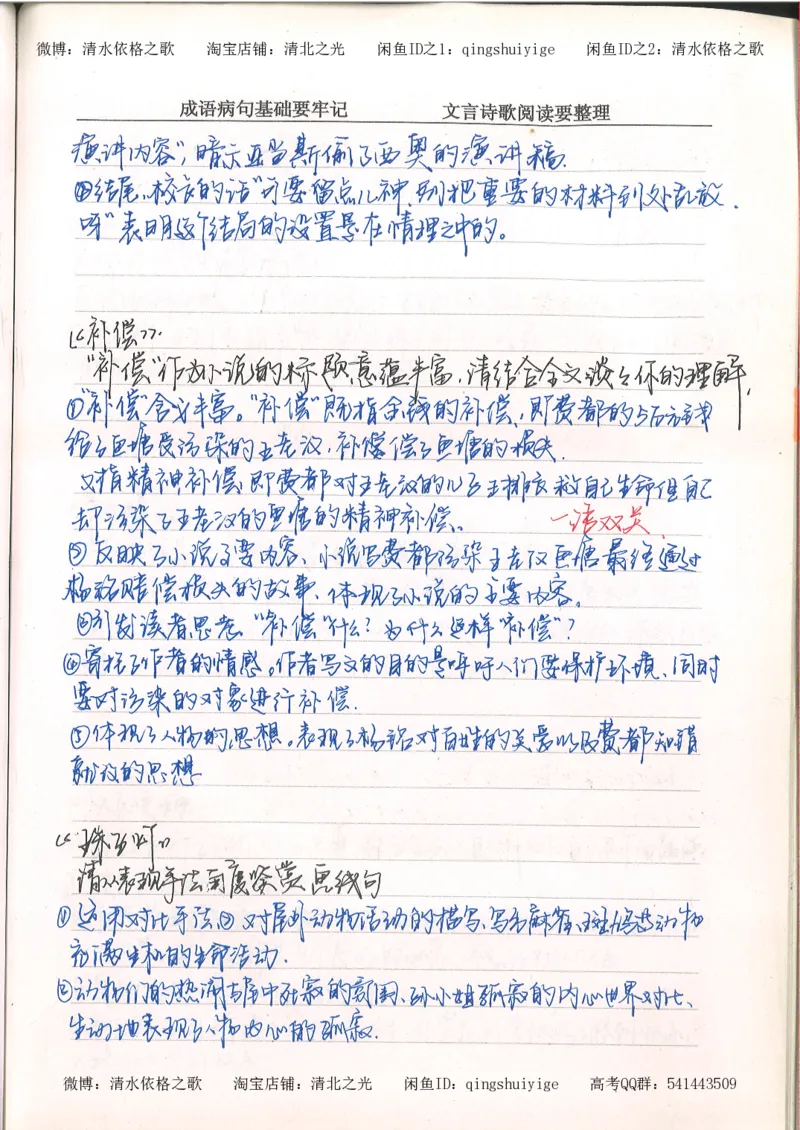 微博：清水依格之歌 淘宝店铺：清北之光 闲鱼ID之1：qingshuiyige 闲鱼ID之2：清水依格之歌
成语病句基础要牢记 文言诗歌阅读要整理
演讲内容”，暗示亚当斯偷了西奥的演讲稿.
④结尾，校长的话“可要留点儿神，别把重要的材料到处乱放.
呀”表明这个结局的设置是在情理之中的。
《补偿》.
“补偿”作为小说的标题意蕴丰富，请结合全文谈谈你的理解，
①“补偿”含义丰富。“补偿”既指金钱的补偿，即费都的 元钱
给了 塘受污染的王老汉，补偿偿了 塘的损失.
又指精神补偿，即费都对王老汉的儿子王排 救自己生命但自己
却污染了王老汉的 塘的精神补偿。 一语双关.
② 反映了小说主要内容、小说写费都污染王老汉 塘最终通过
杨 赔偿损失的故事，体现了小说的主要内容。
③引发读者思考 “补偿”什么？为什么这样“补偿”？
④寄托了作者的情感。作者写文的目的是呼吁人们要保护环境、同时
要对污染的对象进行补偿.
⑤体现了人物的思想。表现了杨 对百姓的关爱以及费都知错
就改的思想
《珠子灯》
请从表现手法角度鉴赏画线句
① 运用对比手法，② 对屋外动物活动的描写，写出麻雀、斑鸠等动物
充满生机的生命活动.
②动物们的热闹与屋中死寂的氛围、孙小姐孤寂的内心世界对比、
生动地表现了人物内心的孤寂.
微博：清水依格之歌 淘宝店铺：清北之光 闲鱼ID：qingshuiyige 高考QQ群：541443509